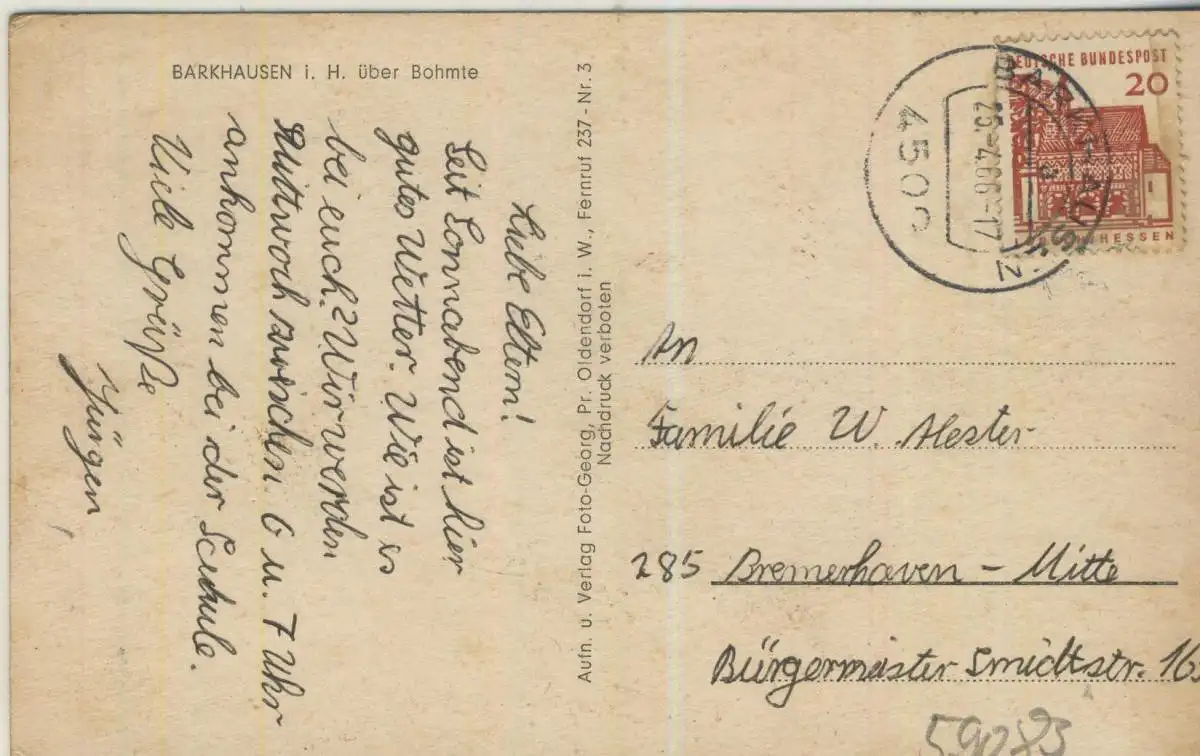 BARKHAUSEN i. H. über Bohmte
Liebe Eltern!
Seit Sonnabend ist hier
gutes Wetter. Wie ist es
bei euch? Wir werden
Mittwoch zwischen 6 u. 7 Uhr
ankommen bei der Schule.
Viele Grüße
Jürgen
Aufn. u. Verlag Foto-Georg, Pr. Oldendorf i. W., Fernruf 237 - Nr. 3
Nachdruck verboten
DEUTSCHE BUNDESPOST
20
HESSEN
BARKHAUSEN
25.-4.66-17
a
4509
An
Familie W. Alester
285 Bremerhaven - Mitte
Bürgermeister Smidtstr. 163